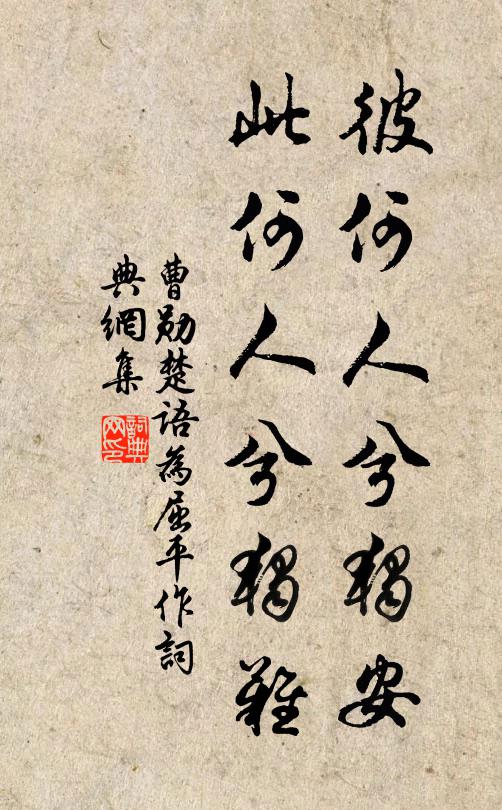 彼何人兮獨安
此何人兮獨難
曹勛楚語為屈平作詞
典網集
詞典
网印